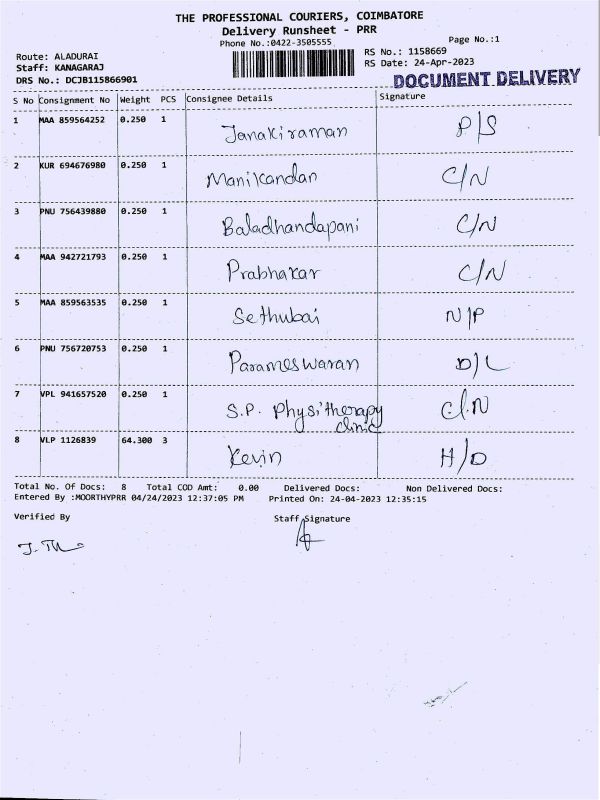 THE PROFESSIONAL COURIERS, COIMBATORE
Delivery Runsheet - PRR
Phone No.:0422-3505555 Page No.:1
Route: ALADURAI RS No.: 1158669
Staff: KANAGARAJ RS Date: 24-Apr-2023
DRS No.: DCJB115866901
DOCUMENT DELIVERY
S No Consignment No Weight PCS Consignee Details Signature
1 MAA 859564252 0.250 1 Janakiraman P/S
2 KUR 694676980 0.250 1 Manikandan C/N
3 PNU 756439880 0.250 1 Baladhandapani C/N
4 MAA 942721793 0.250 1 Prabhakar C/N
5 MAA 859563535 0.250 1 Sethubai N/P
6 PNU 756720753 0.250 1 Parameswaran D/L
7 VPL 941657520 0.250 1 S.P. Physitherapy C/.N
clinic
8 VLP 1126839 64.300 3 Kevin H/D
Total No. Of Docs: 8 Total COD Amt: 0.00 Delivered Docs: Non Delivered Docs:
Entered By :MOORTHYPRR 04/24/2023 12:37:05 PM Printed On: 24-04-2023 12:35:15
Verified By Staff Signature